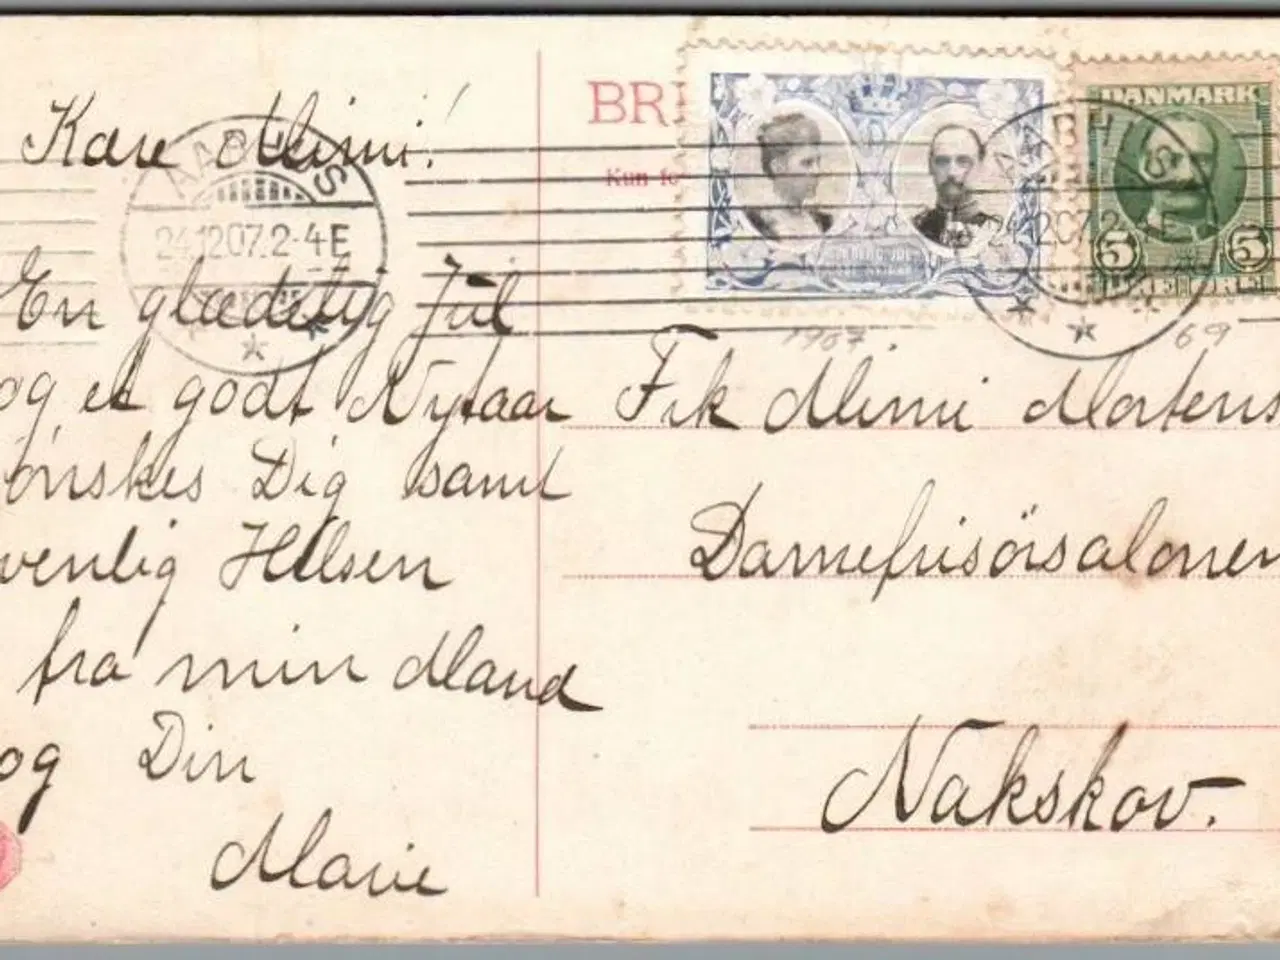 Kære Mimi!
En glædelig Jul
og et godt Nytaar
ønskes Dig samt
venlig Hilsen
fra min Mand
og Din
Marie
BR
Kun fo
DANMARK
5 5
ØRE ØRE
AARHUS
24.12.07.2-4E
AARHUS
24.12.07.2
1907
69
Frk Mimi Mortens
Damefrisörsalonen
Nakskov.